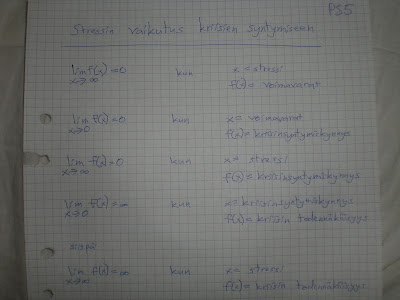 PS5
Stressin vaikutus kriisien syntymiseen
lim f(x) = 0 kun x = stressi
x→∞ f(x) = voimavarat
lim f(x) = 0 kun x = voimavarat
x→0 f(x) = kriisinsyntymiskynnys
lim f(x) = 0 kun x = stressi
x→∞ f(x) = kriisinsyntymiskynnys
lim f(x) = ∞ kun x = kriisinsyntymiskynnys
x→0 f(x) = kriisin todennäköisyys
siispä
lim f(x) = ∞ kun x = stressi
x→∞ f(x) = kriisin todennäköisyys